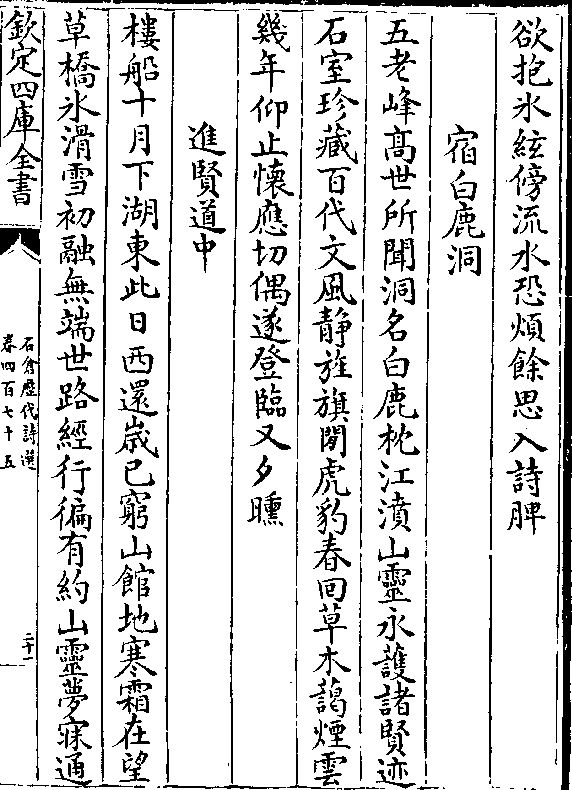 欲抱氷絃傍流水恐煩餘思入詩脾
宿白鹿洞
五老峰髙世所聞洞名白鹿枕江濆山靈永䕶諸賢迹
石室珍藏百代文風静旌旗閒虎豹春回草木藹煙雲
幾年仰止懐應切偶遂登臨又夕曛
進賢道中
樓船十月下湖東此日西還嵗已窮山館地寒霜在望
草橋氷滑雪初融無端世路經行徧有約山靈夢寐通
欽定四庫全書
石倉歷代詩選
卷四百七十五
二十一